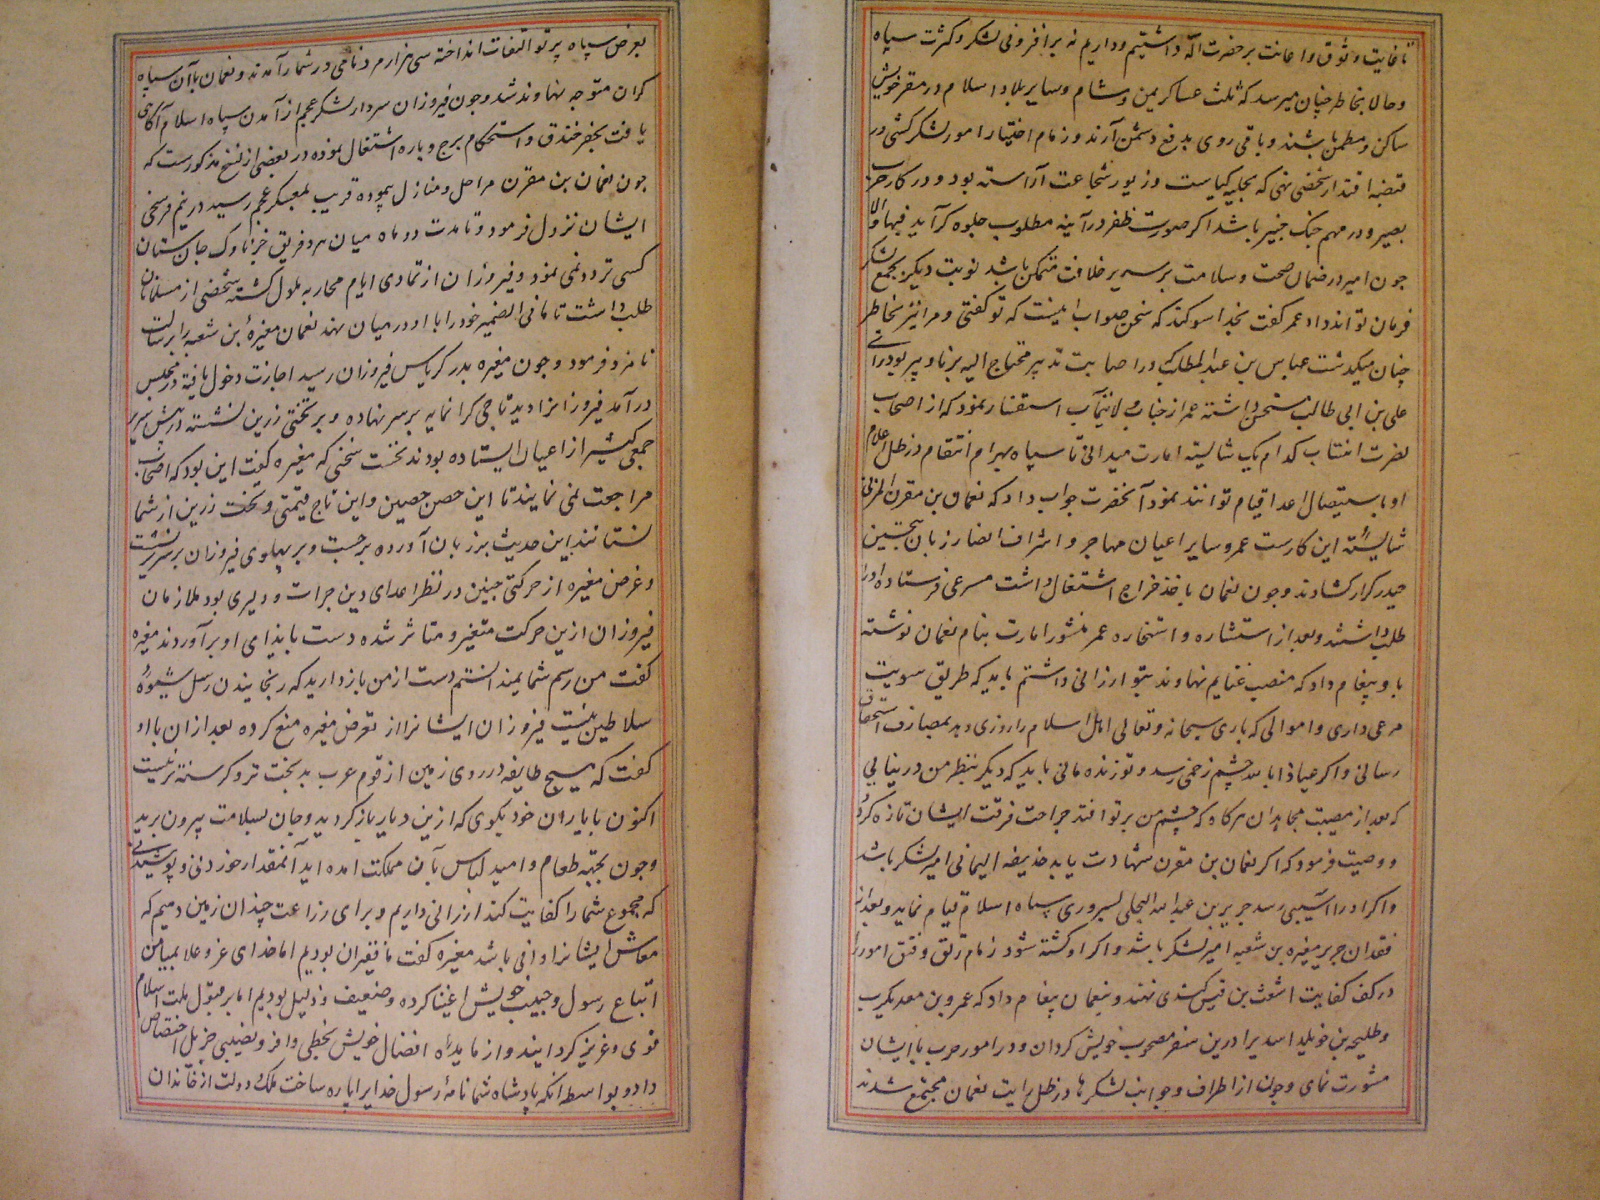 تا غایت وثوق و اعانت بر حضرت اله داشتیم و داریم نه بر افزونی لشکر و کثرت سپاه
و حالا بخاطر چنان میرسد که ثلث عساکر یمن و شام و سایر بلاد اسلام در مقر خویش
ساکن و مطمئن باشند و باقی روی بدفع دشمن آرند و زمام اختیار امور لشکرکشی در
قبضه اقتدار شخصی نهی که بحلیه کیاست و زیور شجاعت آراسته بود و در کار حرب
بصیر و در مهم جنک خبیر باشد اکر صورت ظفر در آینه مطلوب جلوه کر آید فبها و الا
چون امیر در ضمان صحت و سلامت بر سریر خلافت متمکن باشد نوبت دیکر بجمع لشکر
فرمان تواند داد عمر کفت بخدا سوکند که سخن صواب اینست که تو کفتی و مرا نیز بخاطر
چنان میکذشت عباس بن عبدالمطلب که در اصابت تدبیر محتاج الیه برنا و پیر بود رای
علی بن ابی طالب مستحسن داشته عمر از جناب ولایتمآب استفسار نمود که از اصحاب
نصرت انتساب کدام یک شایسته امارت میدانی تا سپاه بهرام انتقام در ظل اعلام
او باستیصال اعدا قیام توانند نمود آنحضرت جواب داد که نعمان بن مقرن المزنی
شایسته این کارست عمر و سایر اعیان مهاجر و اشراف انصار زبان بتحسین
حیدر کرار کشادند و چون نعمان باخذ خراج اشتغال داشت مسرعی فرستاده او را
طلب داشتند و بعد از استشاره و استخاره عمر منشور امارت بنام نعمان نوشته
باو پیغام داد که منصب غنایم نهاوند بتو ارزانی داشتم باید که طریق سویت
مرعی داری و اموالی که باری سبحانه و تعالی اهل اسلام را روزی دهد بمصارف استحقاق
رسانی و اکر عیاذا بالله چشم زخمی رسد و تو زنده مانی باید که دیکر بنظر من در نیایی
که بعد از مصیبت مجاهدان هرکاه که چشم من بر تو افتد جراحت فرقت ایشان تازه کردد
و وصیت فرمود که اکر نعمان بن مقرن شهادت یابد حذیفه الیمانی امیر لشکر باشد
و اکر او را آسیبی رسد جریر بن عبدالله البجلی بسروری سپاه اسلام قیام نماید و بعد از
فقدان جریر مغیره بن شعبه امیر لشکر باشد و اکر او کشته شود زمام رتق و فتق امور را
در کف کفایت اشعث بن قیس کندی نهند و بنعمان پیغام داد که عمرو بن معدیکرب
و طلیحه بن خویلد اسدی را درین سفر مصحوب خویش کردان و در امور حرب با ایشان
مشورت نمای و چون از اطراف و جوانب لشکرها در ظل رایت نعمان مجتمع شدند
بعرض سپاه پرتو التفات انداخته سی هزار مرد نامی در شمار آمدند و نعمان با آن سپاه
کران متوجه نهاوند شد و چون فیروزان سردار لشکر عجم از آمدن سپاه اسلام آکاهی
یافت بحفر خندق و استحکام برج و باره اشتغال نموده در بعضی از نسخ مذکورست که
چون نعمان بن مقرن مراحل و منازل پیموده قریب بمعسکر عجم رسید در نیم فرسخی
ایشان نزول فرمود و تا مدت دو ماه میان هر دو فریق جز ناوک جان ستان
کسی تردد نمی نمود و فیروزان از تمادی ایام محاربه ملول کشته شخصی از مسلمانان
طلب داشت تا مافی الضمیر خود را با او در میان نهد نعمان مغیرهٔ بن شعبه را برسالت
نامزد فرمود و چون مغیره بدر کریاس فیروزان رسید اجازت دخول یافته در مجلس
درآمد فیروزانرا دید تاجی کرانمایه بر سر نهاده و بر تختی زرین نشسته در پیش سریر
جمعی کثیر از اعیان ایستاده بودند نخست سخنی که مغیره کفت این بود که اصحاب
مراجعت نمی نمایند تا این حصن حصین و این تاج قیمتی و تخت زرین از شما
نستانند این حدیث بر زبان آورده برجست و بر پهلوی فیروزان بر سریر نشست
و غرض مغیره از حرکتی چنین در نظر اعدای دین جرات و دلیری بود ملازمان
فیروزان ازین حرکت متغیر و متاثر شده دست بایذای او برآوردند مغیره
کفت من رسم شما نمیدانستم دست از من باز دارید که رنجانیدن رسل شیوهٔ
سلاطین نیست فیروزان ایشانرا از تعرض مغیره منع کرده بعد از ان با او
کفت که هیچ طایفه در روی زمین از قوم عرب بدبخت تر و کرسنه تر نیست
اکنون با یاران خود بکوی که ازین دیار باز کردید و جان بسلامت بیرون برید
و چون بجهة طعام و امید لباس بآن مملکت امده اید آنمقدار خوردنی و پوشیدنی
که مجموع شما را کفایت کند ارزانی داریم و برای زراعت چندان زمین دهیم که
معاش ایشانرا وافی باشد مغیره کفت ما فقیران بودیم اما خدای عز و علا بمیامن
اتباع رسول و حبیب خویش اغنیا کرده و ضعیف و ذلیل بودیم اما بر قبول ملت اسلام
قوی و عزیز کردانیند و از مایدهٔ افضال خویش بحظی وافر و نصیبی جزیل اختصاص
داد و بواسطه انکه پادشاه شما نامهٔ رسول خدایرا پاره ساخت ملک و دولت از خاندان